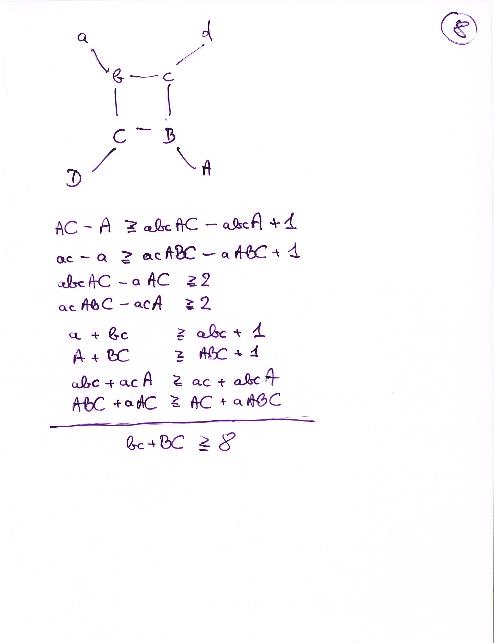 8
a d
b c
C B
D A
AC - A ≥ abcAC - abcA + 1
ac - a ≥ acABC - aABC + 1
abcAC - aAC ≥ 2
acABC - acA ≥ 2
a + bc ≥ abc + 1
A + BC ≥ ABC + 1
abc + acA ≥ ac + abcA
ABC + aAC ≥ AC + aABC
bc + BC ≥ 8